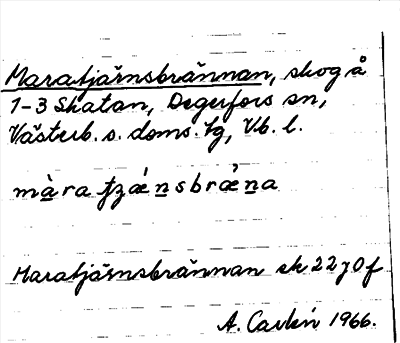 Maratjärnsbrännan, skog å
1-3 Skatan, Degerfors sn,
Västerb. s. doms. tg, Vb. l.
màra tʒǽnsbrǽna
Maratjärnsbrännan ek 22 J 0 f
A. 1966.